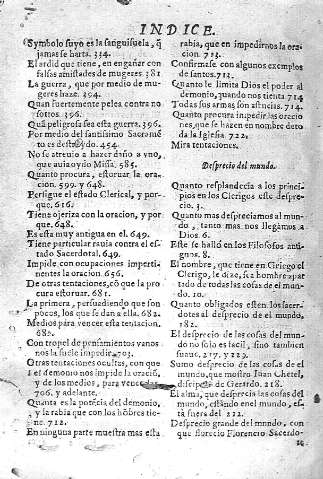 INDICE.
Symbolo suyo es la sanguisuela, q̃
jamas se harta. 334.
El ardid que tiene, en engañar con
falsas amistades de mugeres. 381
La guerra, que por medio de mu-
geres haze. 394.
Quan fuertemente pelea contra no-
sotros. 396.
Quã peligrosa sea esta guerra. 396.
Por medio del santissimo Sacramẽ
to es destruydo. 454.
No se atreuio a hazer daño a vno,
que auia oydo Missa. 585.
Quanto procura, estoruar la ora-
cion. 599. y 648.
Persigue el estado Clerical, y por-
que. 616.
Tiene ojeriza con la oracion, y por
que. 648.
Es esta muy antigua en el. 649.
Tiene particular rauia contra el es-
tado Sacerdotal. 649.
Impide con ocupaciones imperti-
nentes la oracion. 656.
De otras tentaciones, cõ que la pro
cura estoruar. 681.
La primera, persuadiendo que son
pocos, los que se dan a ella. 682.
Medios para vencer esta tentacion.
682.
Con tropel de pensamientos vanos
nos la suele impedir. 703.
Otras tentaciones ocultas, con que
el demonio nos impide la oraciõ,
y de los medios, para vencerlas
706. y adelante.
Quanta es la potẽcia del demonio,
y la rabia que con los hõbres tie-
ne. 712.
En ninguna parte muestra mas esta
rabia, que en impedirnos la ora-
cion. 713.
Confirmase con algunos exemplos
de santos. 713.
Quanto le limita Dios el poder al
demonio, quando nos tienta 714
Todas sus armas son astucias. 714.
Quanto procura impedir las oracio
nes, que se hazen en nombre de to
da la Iglesia 722.
Mira tentaciones.
Desprecio del mundo.
Quanto resplandecia a los princi-
pios en los Clerigos este despre-
cio. 3.
Quanto mas despreciamos al mun-
do, tanto mas nos llegamos a
Dios 6.
Este se hallò en los Filosofos anti-
guos. 8.
El nombre, que tiene en Griego el
Clerigo, le dize, sea hombre apar-
tado de todas las cosas de el mun-
do. 10.
Quanto obligados esten los sacer-
dotes al desprecio de el mundo.
182.
El desprecio de las cosas del mun-
do no solo es facil, sino tambien
suaue. 217. y 229.
Sumo desprecio de las cosas de el
mundo, que mostro Iuan Chetel,
discipulo de Gerardo. 218.
El alma, que desprecia las cosas del
mundo, estãdo en el mundo, es-
tà fuera del 222.
Desprecio grande del mundo, con
que florecio Florencio Sacerdo-